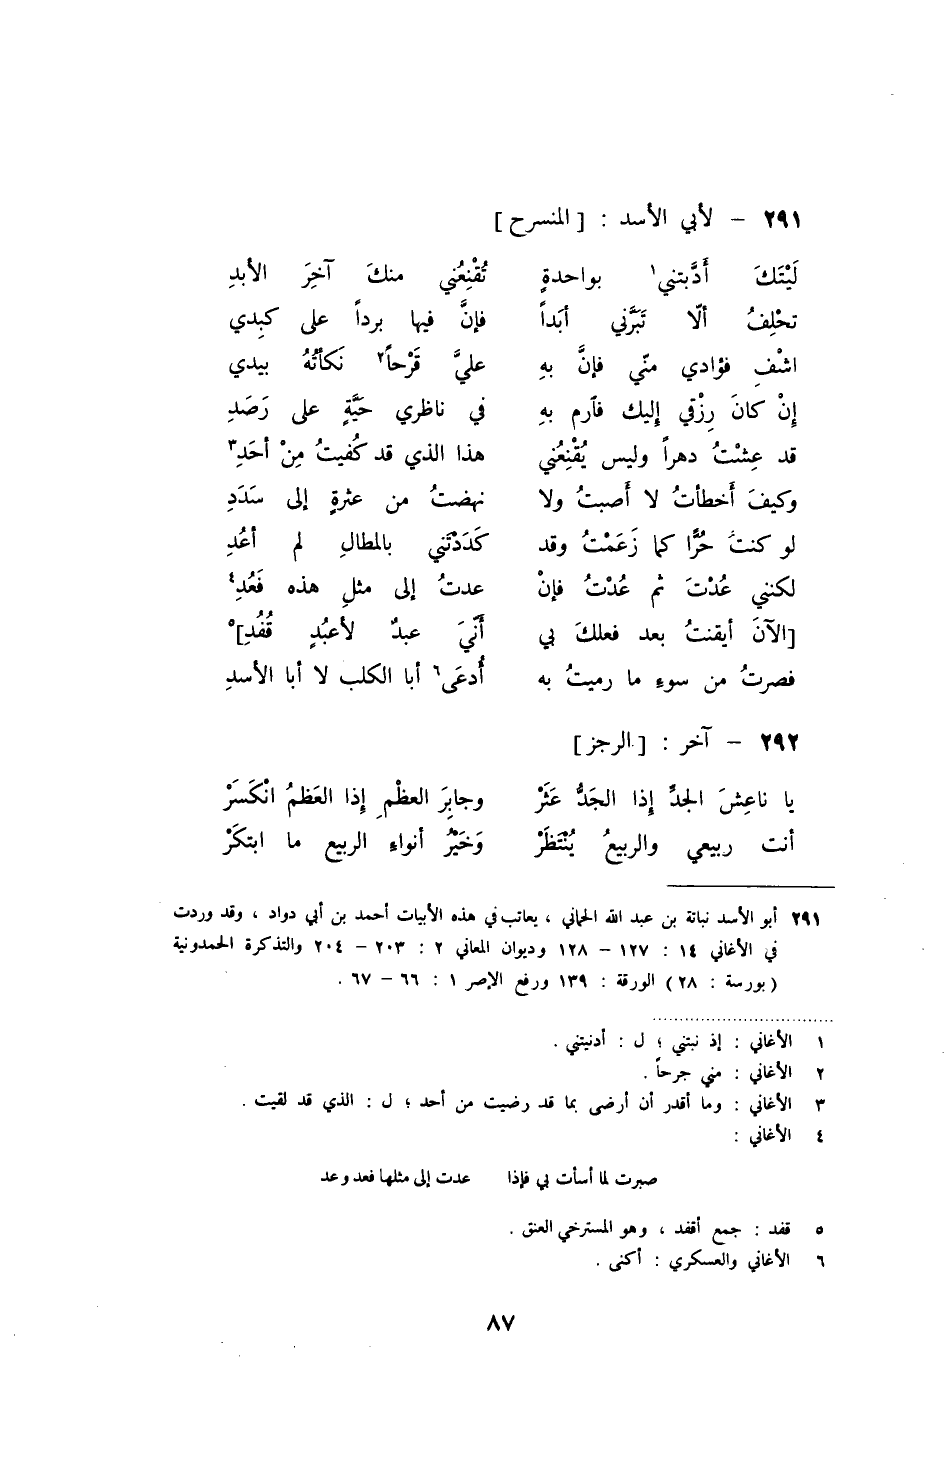 ٢٩١ – لأبي الأسد : [ المنسرح ]
لَيْتَكَ أَدَّبتني١ بواحدةٍ تُقْنِعُني منكَ آخِرَ الأبدِ
تحْلِفُ ألّا تَبَرَّني أبَداً فإنَّ فيها برداً على كبِدي
اشْفِ فؤادي منّي فإنَّ بهِ عليَّ قَرْحاً٢ نَكأتُهُ بيدي
إنْ كانَ رِزْقي إليك فآرمِ بهِ في ناظري حَيَّةٍ على رَصَدِ
قد عِشْتُ دهراً وليس يُقْنِعُني هذا الذي قد كُفيتُ مِنْ أحَدِ٣
وكيفَ أَخطأتُ لا أَصبتُ ولا نهضتُ من عثرةٍ إلى سَدَدِ
لو كنتَُ حُرًّا كما زَعَمْتُ وقد كَدَدْتَني بالمطالِ لم أعُدِ
لكنني عُدْتَ ثم عُدْتُ فإنْ عدتُ إلى مثلِ هذه فَعُدِ٤
[الآنَ أيقنتُ بعد فعلكَ بي أنّيَ عبدٌ لأعبُدٍ قُفُدِ]٥
فصرتُ من سوءِ ما رميتُ به أُدعَى٦ أبا الكلب لا أبا الأسدِ
٢٩٢ – آخر : [ الرجز ]
يا ناعِشَ الجدِّ إذا الجَدُّ عَثَرْ وجابِرَ العظْمِ إذا العَظمُ انْكَسَرْ
أنت ربيعي والربيعُ يُنْتَظَرْ وَخَيْرُ أنواءِ الربيع ما ابتكَرْ
٢٩١ أبو الأسد نباتة بن عبد الله الحماني ، يعاتب في هذه الأبيات أحمد بن أبي دواد ، وقد وردت
في الأغاني ١٤ : ١٢٧ – ١٢٨ وديوان المعاني ٢ : ٢٠٣ – ٢٠٤ والتذكرة الحمدونية
( بورسة : ٢٨ ) الورقة : ١٣٩ ورفع الإصر ١ : ٦٦ – ٦٧ .
١ الأغاني : إذ نبتني ؛ ل : أدنيتني .
٢ الأغاني : مني جرحاً .
٣ الأغاني : وما أقدر أن أرضى بما قد رضيت من أحد ؛ ل : الذي قد لقيت .
٤ الأغاني :
صبرت لما أسأت بي فإذا عدت إلى مثلها فعد وعد
٥ قفد : جمع أقفد ، وهو المسترخي العنق .
٦ الأغاني والعسكري : أكنى .
٨٧